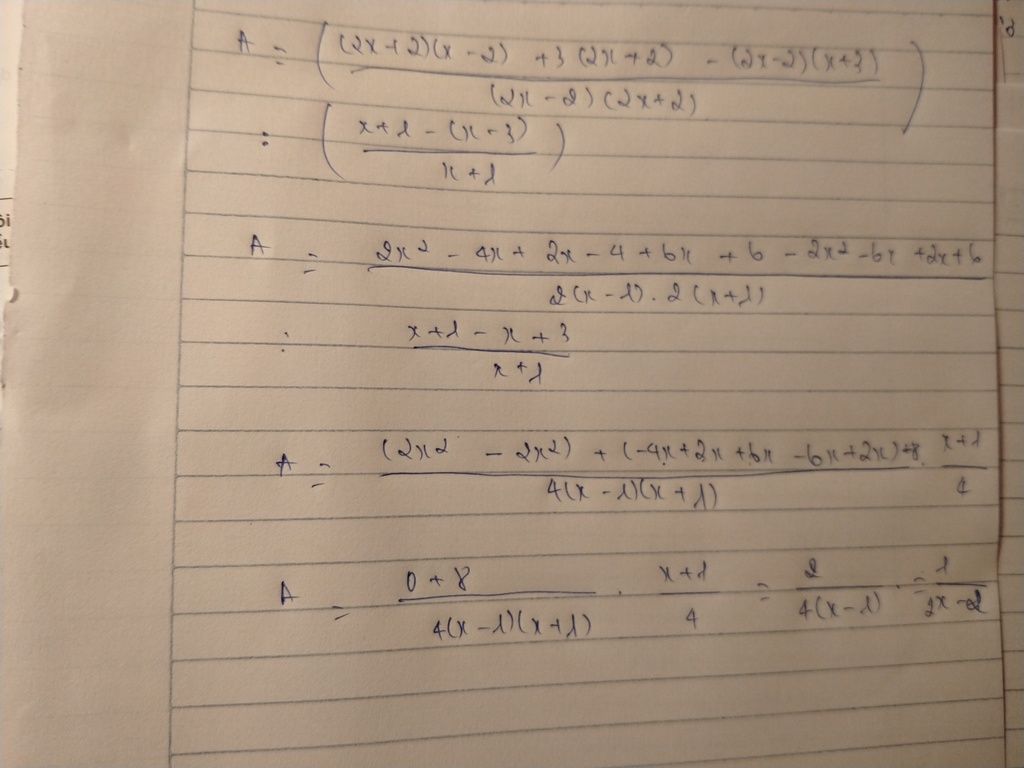 A = ( (2x+2)(x-2) + 3(2x+2) - (2x-2)(x+3)
(2x-2)(2x+2) )
: ( x+1 - (x-3)
x+1 )
A = 2x² - 4x + 2x - 4 + 6x + 6 - 2x² - 6x + 2x + 6
2(x-1) . 2(x+1)
: x+1 - x + 3
x+1
A = (2x² - 2x²) + (-4x + 2x + 6x - 6x + 2x) + 8 . x+1
4(x-1)(x+1) 4
A = 0 + 8 . x+1 = 2 . = 1
4(x-1)(x+1) 4 4(x-1) 2x-2